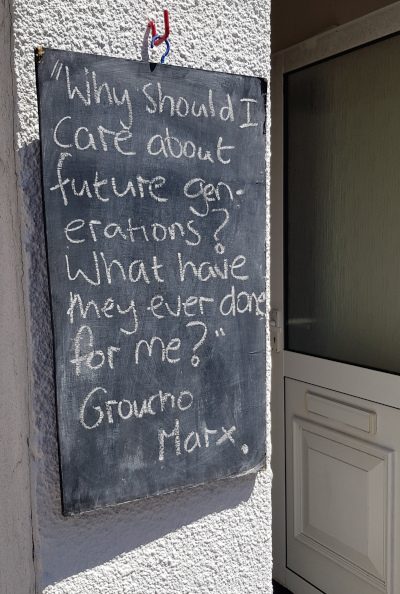 "Why should I
care about
future gen-
erations?
What have
they ever done
for me?"
Groucho
Marx.